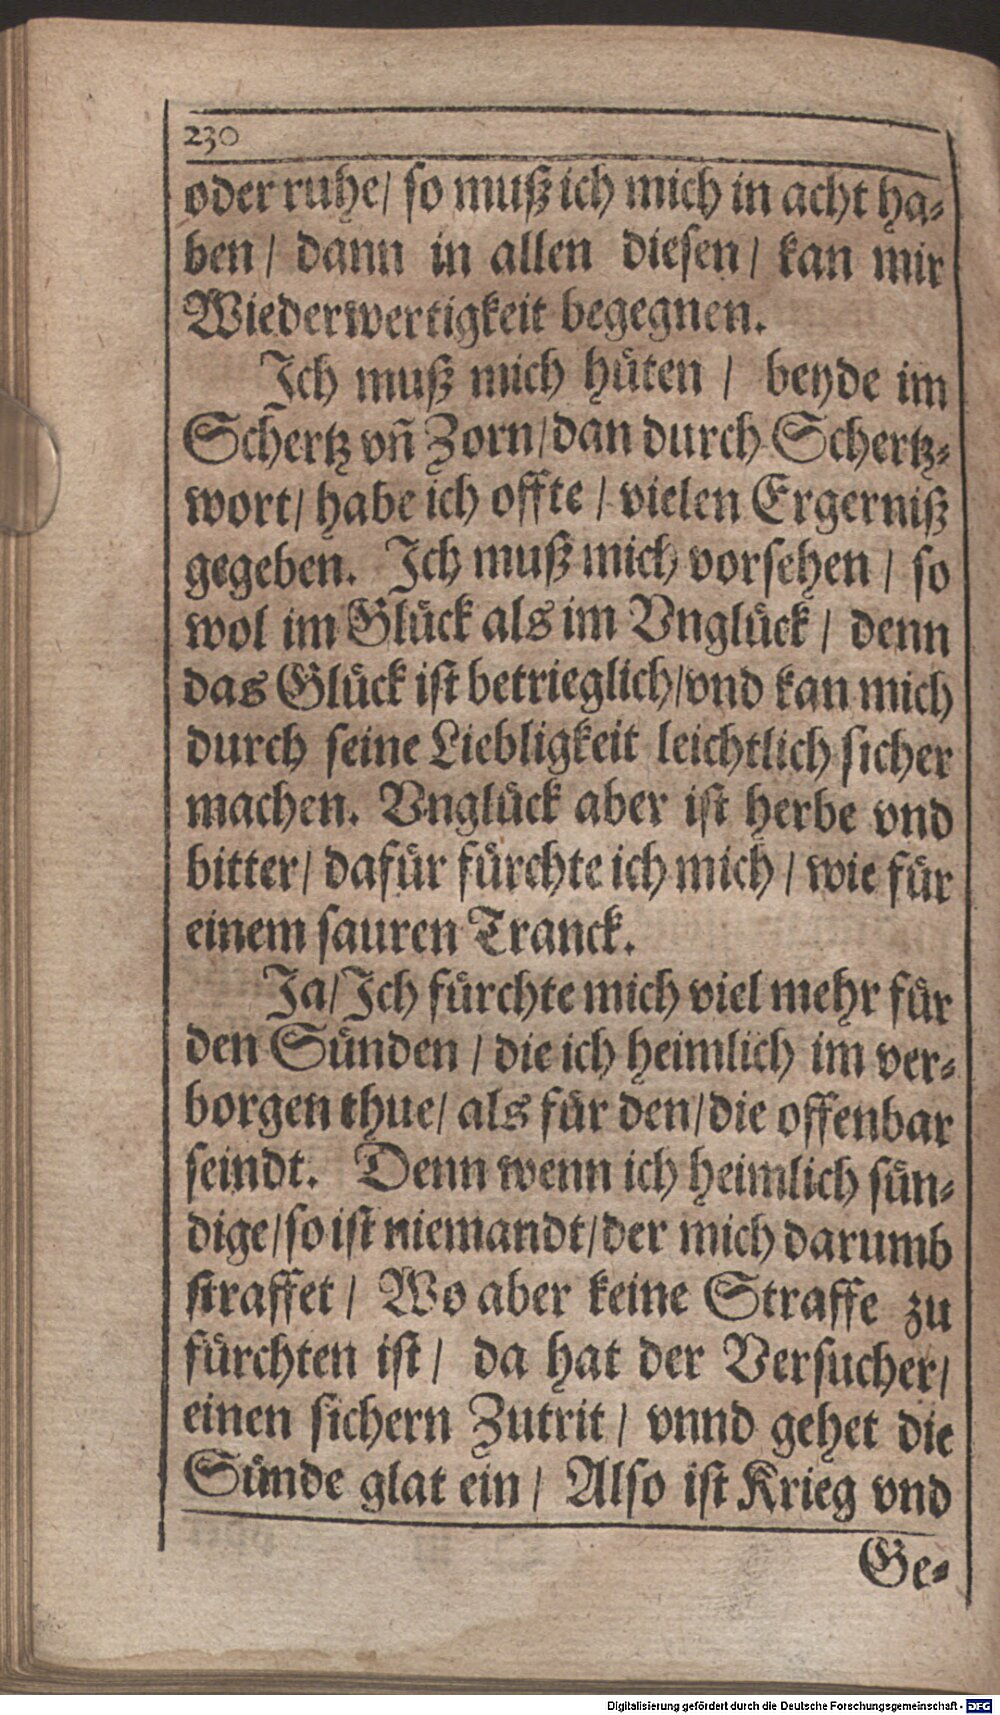 230
oder ruhe/ so muß ich mich in acht ha-
ben/ dann in allen diesen/ kan mir
Wiederwertigkeit begegnen.
Ich muß mich hüten / beyde im
Schertz vñ Zorn/dan durch Schertz-
wort/ habe ich offte / vielen Ergerniß
gegeben. Ich muß mich vorsehen / so
wol im Glück als im Vnglück / denn
das Glück ist betrieglich/vnd kan mich
durch seine Liebligkeit leichtlich sicher
machen. Vnglück aber ist herbe vnd
bitter/ dafür fürchte ich mich / wie für
einem sauren Tranck.
Ja/Ich fürchte mich viel mehr für
den Sünden / die ich heimlich im ver-
borgen thue/ als für den/die offenbar
seindt. Denn wenn ich heimlich sün-
dige/so ist niemandt/der mich darumb
straffet / Wo aber keine Straffe zu
fürchten ist/ da hat der Versucher/
einen sichern Zutrit / vnnd gehet die
Sünde glat ein / Also ist Krieg vnd
Ge-
Digitalisierung gefördert durch die Deutsche Forschungsgemeinschaft - DFG